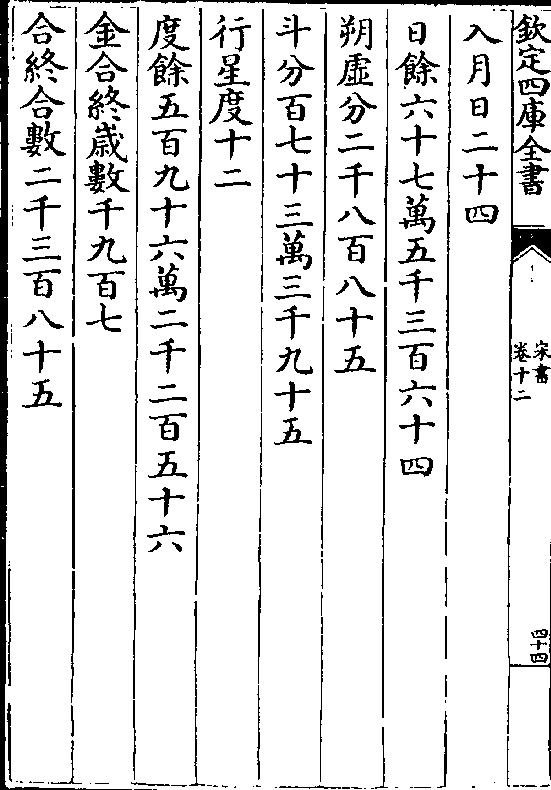 欽定四庫全書
宋書
卷十二
四十四
入月日二十四
日餘六十七萬五千三百六十四
朔虛分二千八百八十五
斗分百七十三萬三千九十五
行星度十二
度餘五百九十六萬二千二百五十六
金合終歲數千九百七
合終合數二千三百八十五